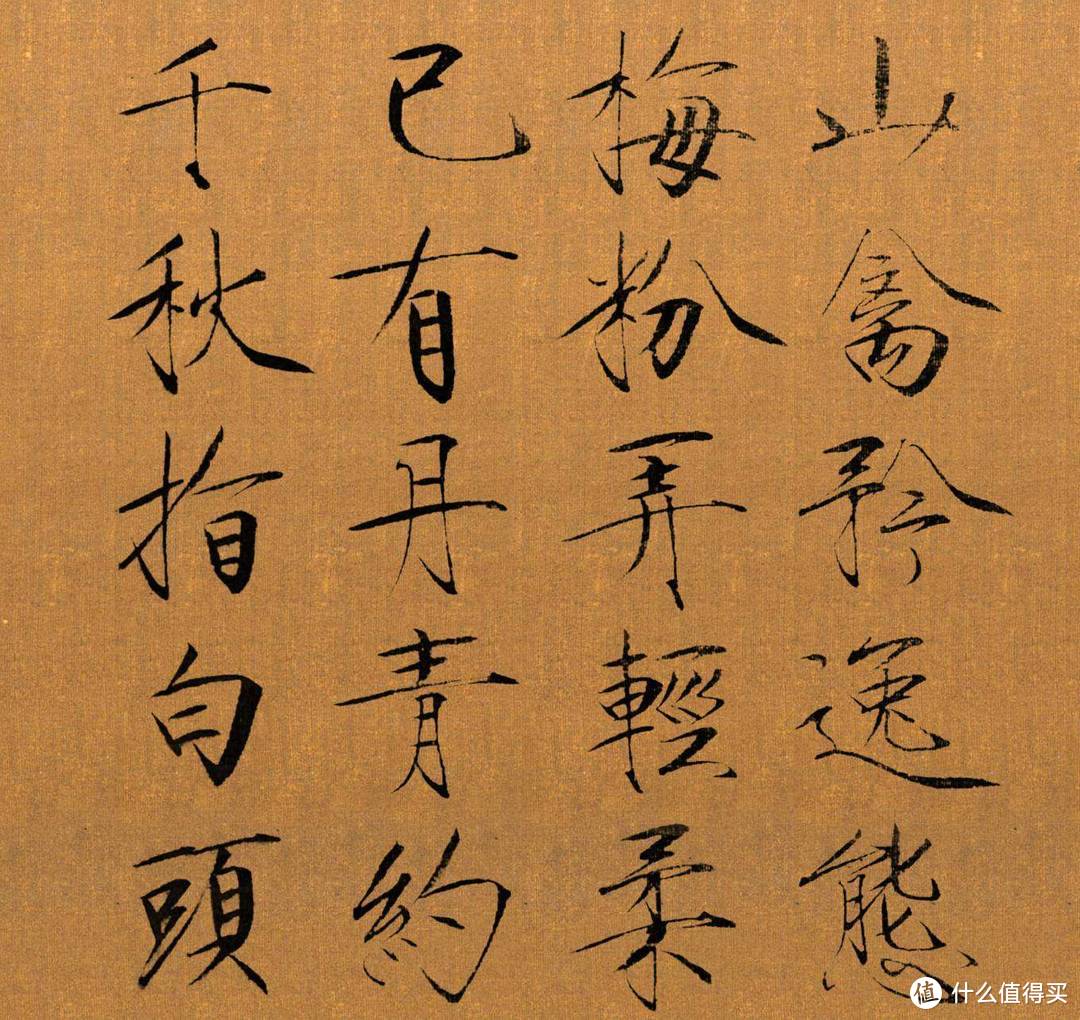 山禽矜逸態
梅粉弄輕柔
已有丹青約
千秋指白頭
值 什么值得买